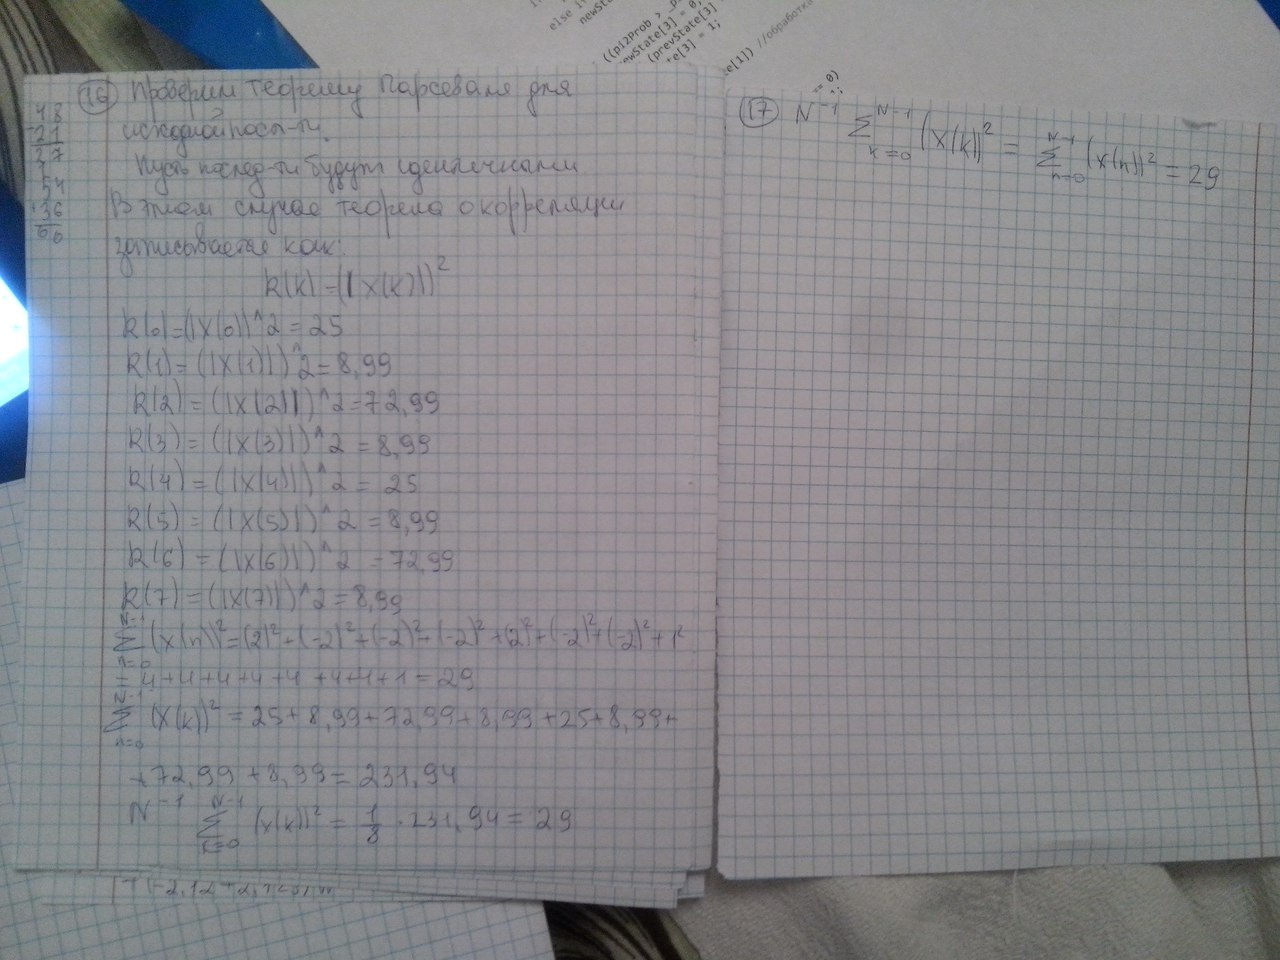 else i
newState
((p12Prob > _p
newState[3] = 0;
(prevState[3]
te[3] = 1;
te[1]) //обработка
= 0)
16 Проверим теорему Парсеваля для
исходной посл-ти.
Пусть послед-ти будут идентичными
В этом случае теорема о корреляции
записывается как:
R(k) = (|X(k)|)^2
R(0) = (|X(0)|)^2 = 25
R(1) = (|X(1)|)^2 = 8,99
R(2) = (|X(2)|)^2 = 72,99
R(3) = (|X(3)|)^2 = 8,99
R(4) = (|X(4)|)^2 = 25
R(5) = (|X(5)|)^2 = 8,99
R(6) = (|X(6)|)^2 = 72,99
R(7) = (|X(7)|)^2 = 8,99
N-1 Σ n=0 (x(n))^2 = (2)^2 + (-2)^2 + (-2)^2 + (-2)^2 + (2)^2 + (-2)^2 + (-2)^2 + 1^2
= 4+4+4+4+4+4+4+1 = 29
N-1 Σ n=0 (X(k))^2 = 25 + 8,99 + 72,99 + 8,99 + 25 + 8,99 +
+ 72,99 + 8,99 = 231,94
N^-1 N-1 Σ k=0 (x(k))^2 = 1/8 · 231,94 = 29
48
21
27
54
36
66
17 N^-1 N-1 Σ k=0 (X(k))^2 = N-1 Σ n=0 (x(n))^2 = 29